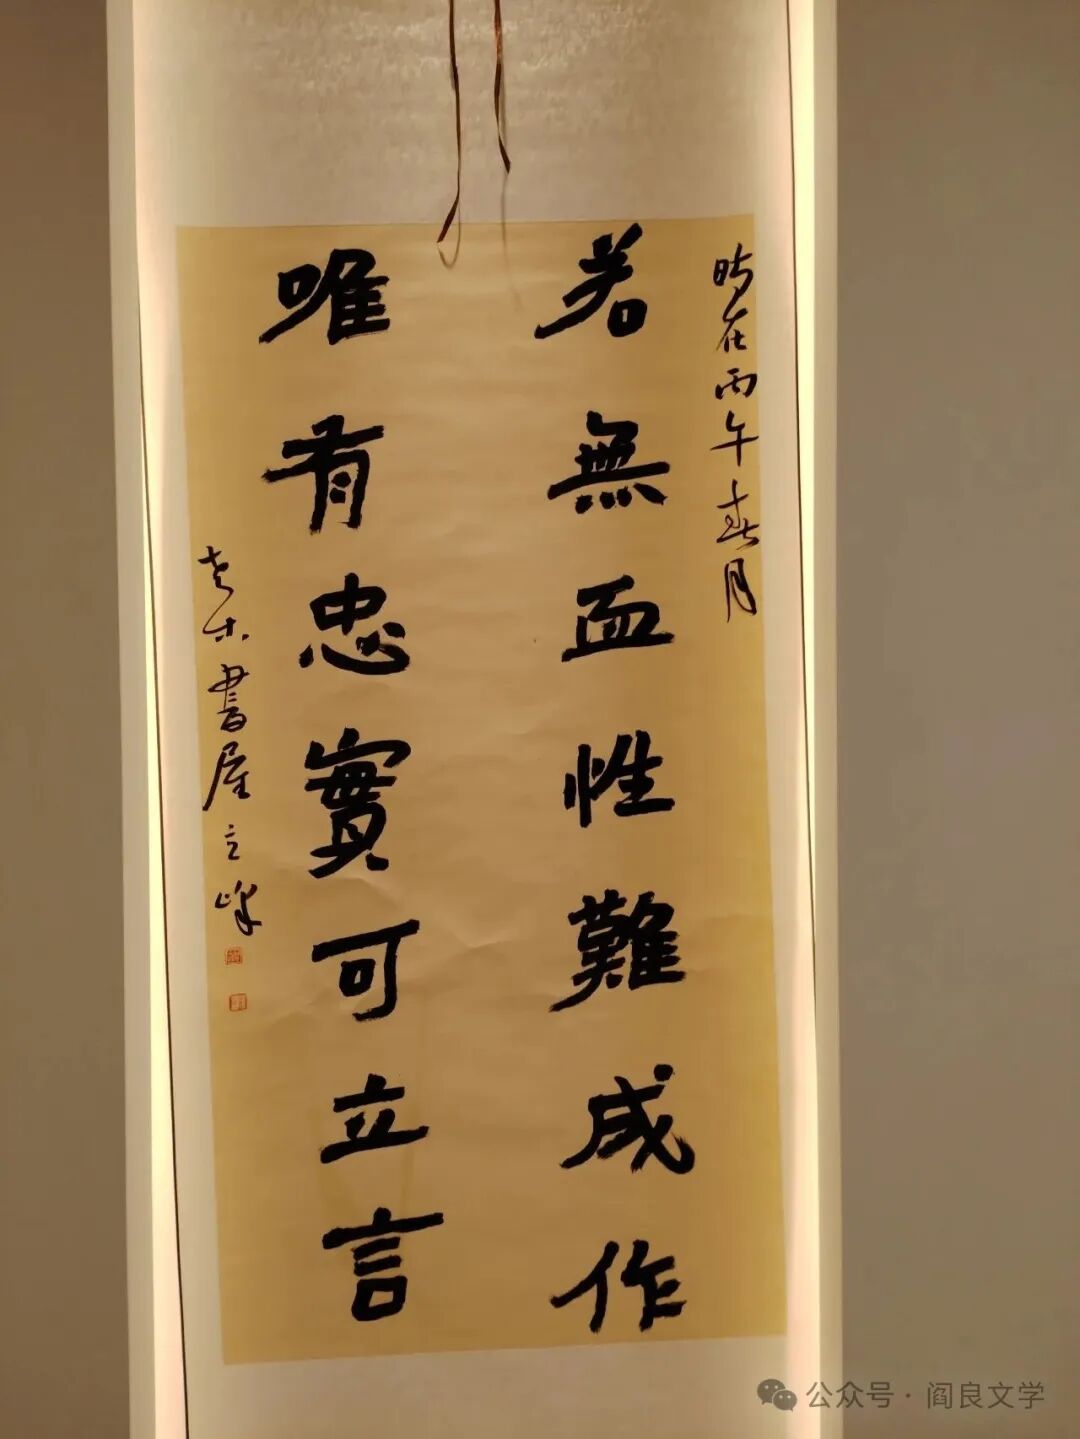 時在丙午春月
若無血性難成作
唯有忠實可立言
老木書屋立峰
公众号·阎良文学